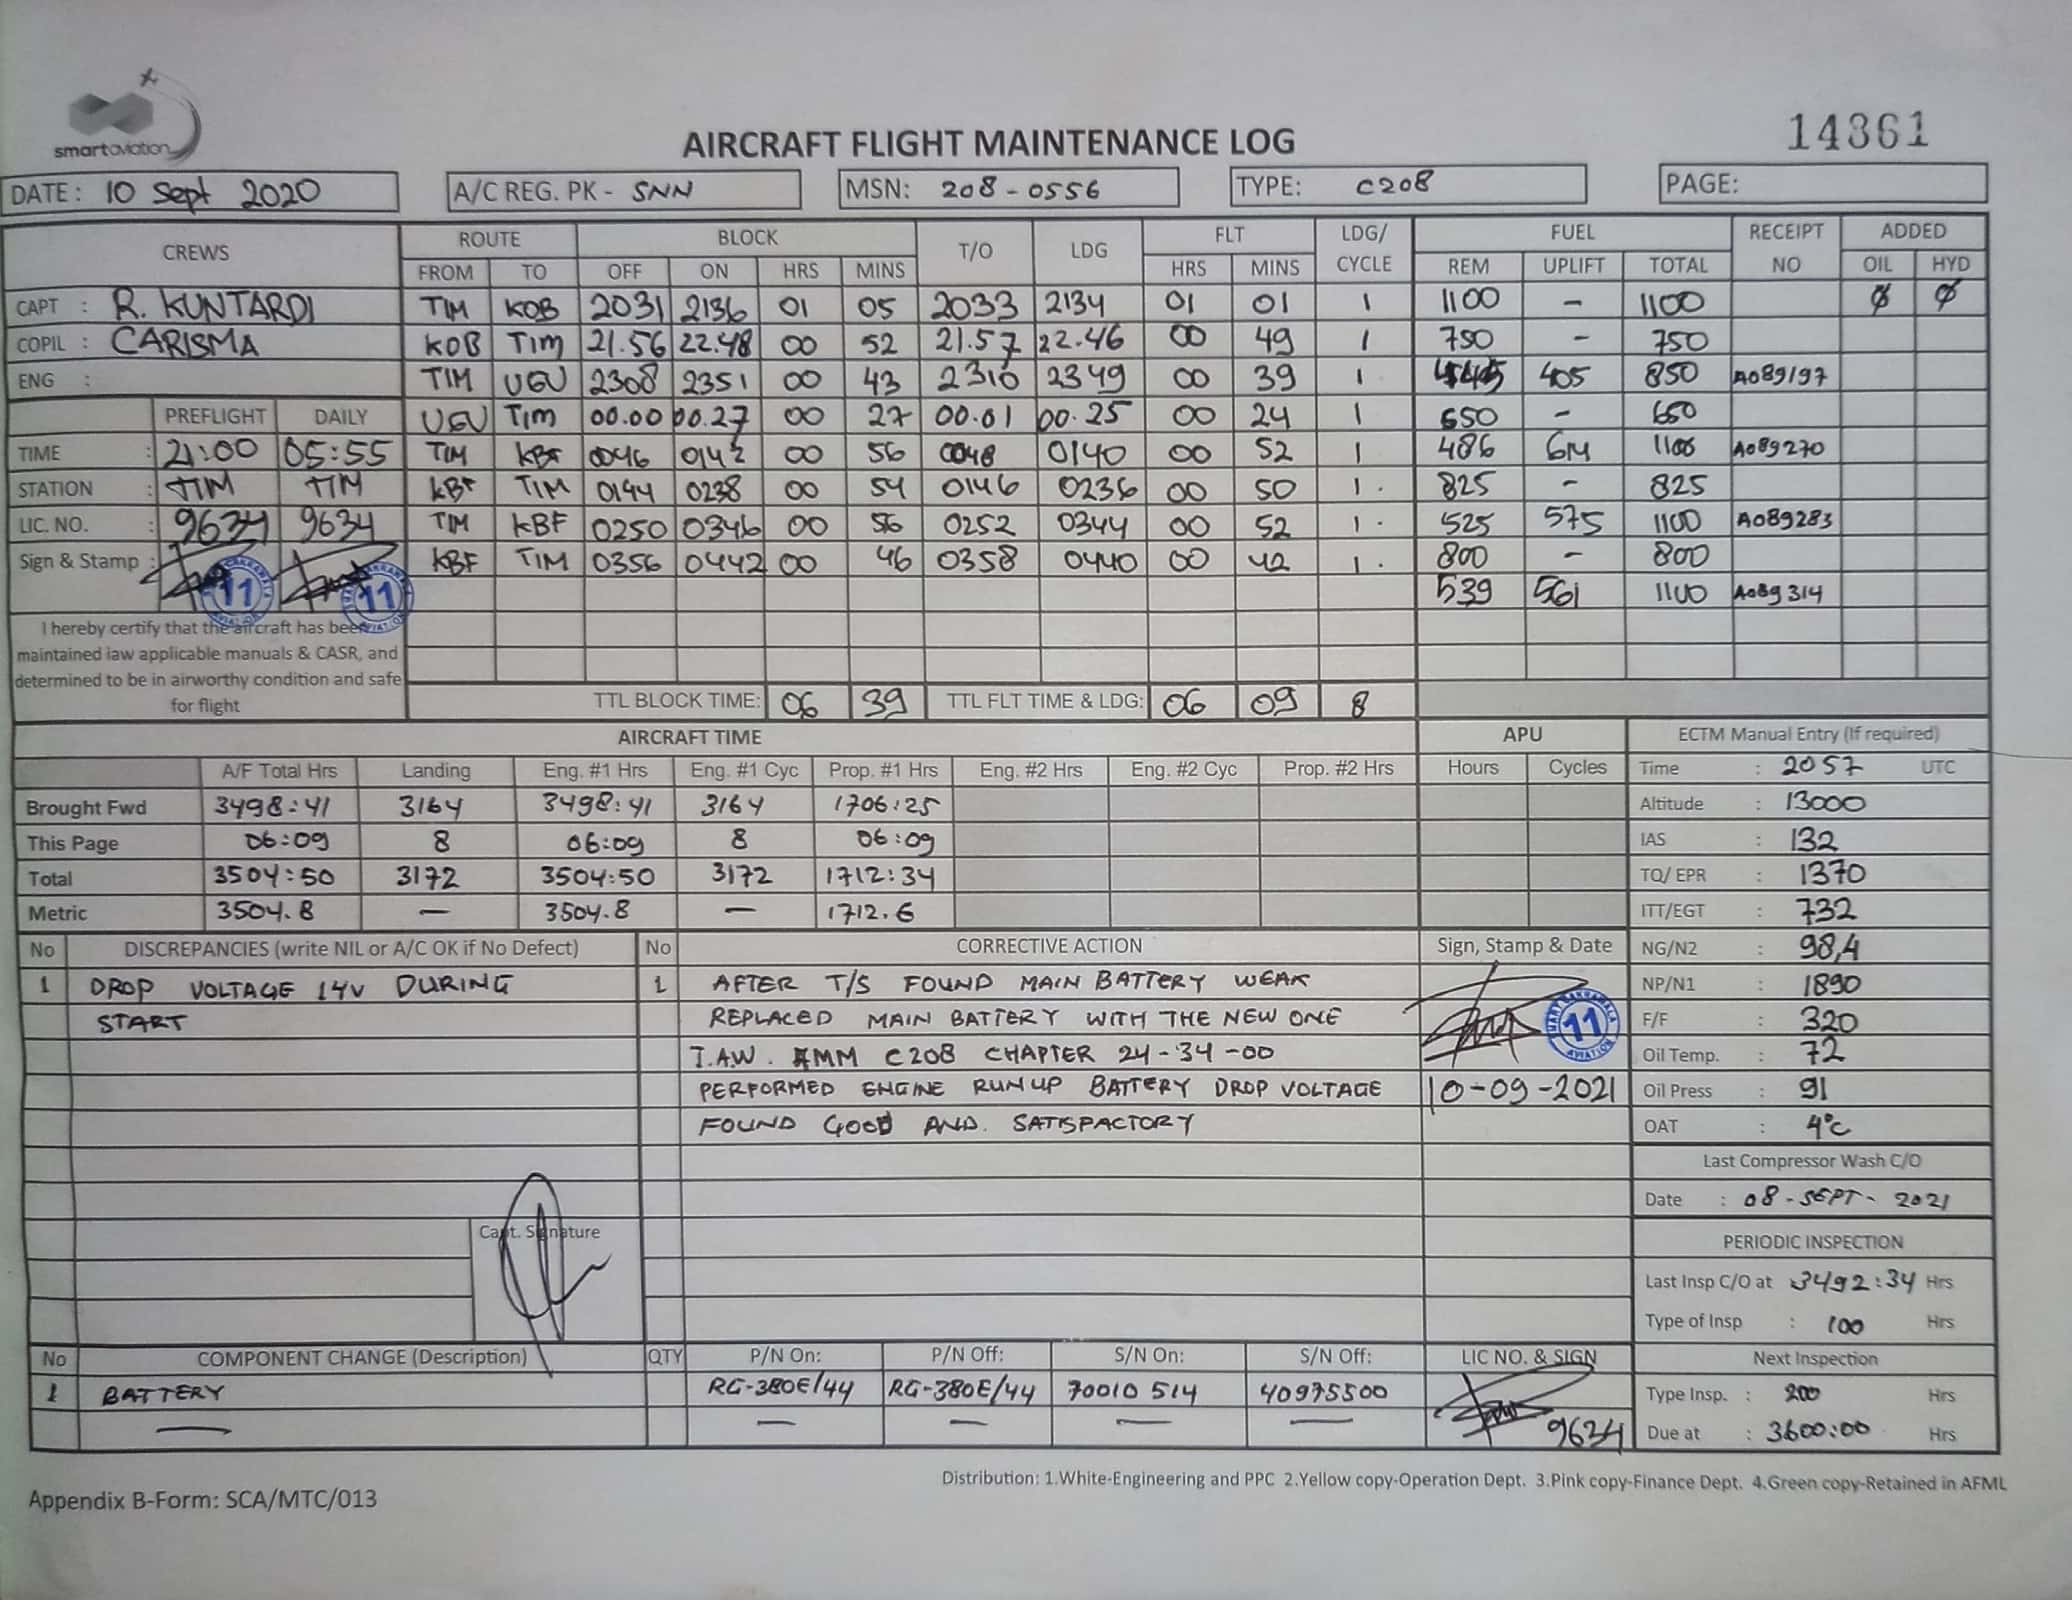 smartaviation
14361
AIRCRAFT FLIGHT MAINTENANCE LOG
DATE: 10 Sept 2020 A/C REG. PK - SNN MSN: 208-0556 TYPE: C208 PAGE:
CREWS ROUTE BLOCK T/O LDG FLT LDG/ CYCLE FUEL RECEIPT NO ADDED
FROM TO OFF ON HRS MINS HRS MINS REM UPLIFT TOTAL OIL HYD
CAPT : R. KUNTARDI TIM KOB 2031 2136 01 05 2033 2134 01 01 1 1100 - 1100 Ø Ø
COPIL : CARISMA KOB TIM 21.56 22.48 00 52 21.57 22.46 00 49 1 750 - 750
ENG : TIM UGU 2308 2351 00 43 2310 2349 00 39 1 405 850 A089197
PREFLIGHT DAILY UGU TIM 00.00 00.27 00 27 00.01 00.25 00 24 1 650 - 650
TIME : 21:00 05:55 TIM KBF 0046 0142 00 56 0048 0140 00 52 1 486 614 1100 A089270
STATION : TIM TIM KBF TIM 0144 0238 00 54 0146 0236 00 50 1 825 - 825
LIC. NO. : 9634 9634 TIM KBF 0250 0346 00 56 0252 0344 00 52 1 525 575 1100 A089283
Sign & Stamp : 11 11 KBF TIM 0356 0442 00 46 0358 0440 00 42 1 800 - 800
539 561 1100 A089314
I hereby certify that the aircraft has been
maintained iaw applicable manuals & CASR, and
determined to be in airworthy condition and safe
for flight
TTL BLOCK TIME: 06 39 TTL FLT TIME & LDG: 06 09 8
AIRCRAFT TIME APU ECTM Manual Entry (If required)
A/F Total Hrs Landing Eng. #1 Hrs Eng. #1 Cyc Prop. #1 Hrs Eng. #2 Hrs Eng. #2 Cyc Prop. #2 Hrs Hours Cycles Time : 2057 UTC
Brought Fwd 3498:41 3164 3498:41 3164 1706:25 Altitude : 13000
This Page 06:09 8 06:09 8 06:09 IAS : 132
Total 3504:50 3172 3504:50 3172 1712:34 TQ/ EPR : 1370
Metric 3504.8 — 3504.8 — 1712.6 ITT/EGT : 732
No DISCREPANCIES (write NIL or A/C OK if No Defect) No CORRECTIVE ACTION Sign, Stamp & Date NG/N2 : 98,4
1 DROP VOLTAGE 14V DURING 1 AFTER T/S FOUND MAIN BATTERY WEAK NP/N1 : 1890
START REPLACED MAIN BATTERY WITH THE NEW ONE 11 AVIATION F/F : 320
I.A.W. AMM C208 CHAPTER 24-34-00 Oil Temp. : 72
PERFORMED ENGINE RUN UP BATTERY DROP VOLTAGE 10-09-2021 Oil Press : 91
FOUND GOOD AND. SATISPACTORY OAT : 4°C
Last Compressor Wash C/O
Date : 08-SEPT-2021
Capt. Signature
PERIODIC INSPECTION
Last Insp C/O at 3492:34 Hrs
Type of Insp : 100 Hrs
No COMPONENT CHANGE (Description) QTY P/N On: P/N Off: S/N On: S/N Off: LIC NO. & SIGN Next Inspection
1 BATTERY RG-380E/44 RG-380E/44 70010514 40975500 Type Insp. : 200 Hrs
— — — — — 9634 Due at : 3600:00 Hrs
Distribution: 1.White-Engineering and PPC 2.Yellow copy-Operation Dept. 3.Pink copy-Finance Dept. 4.Green copy-Retained in AFML
Appendix B-Form: SCA/MTC/013